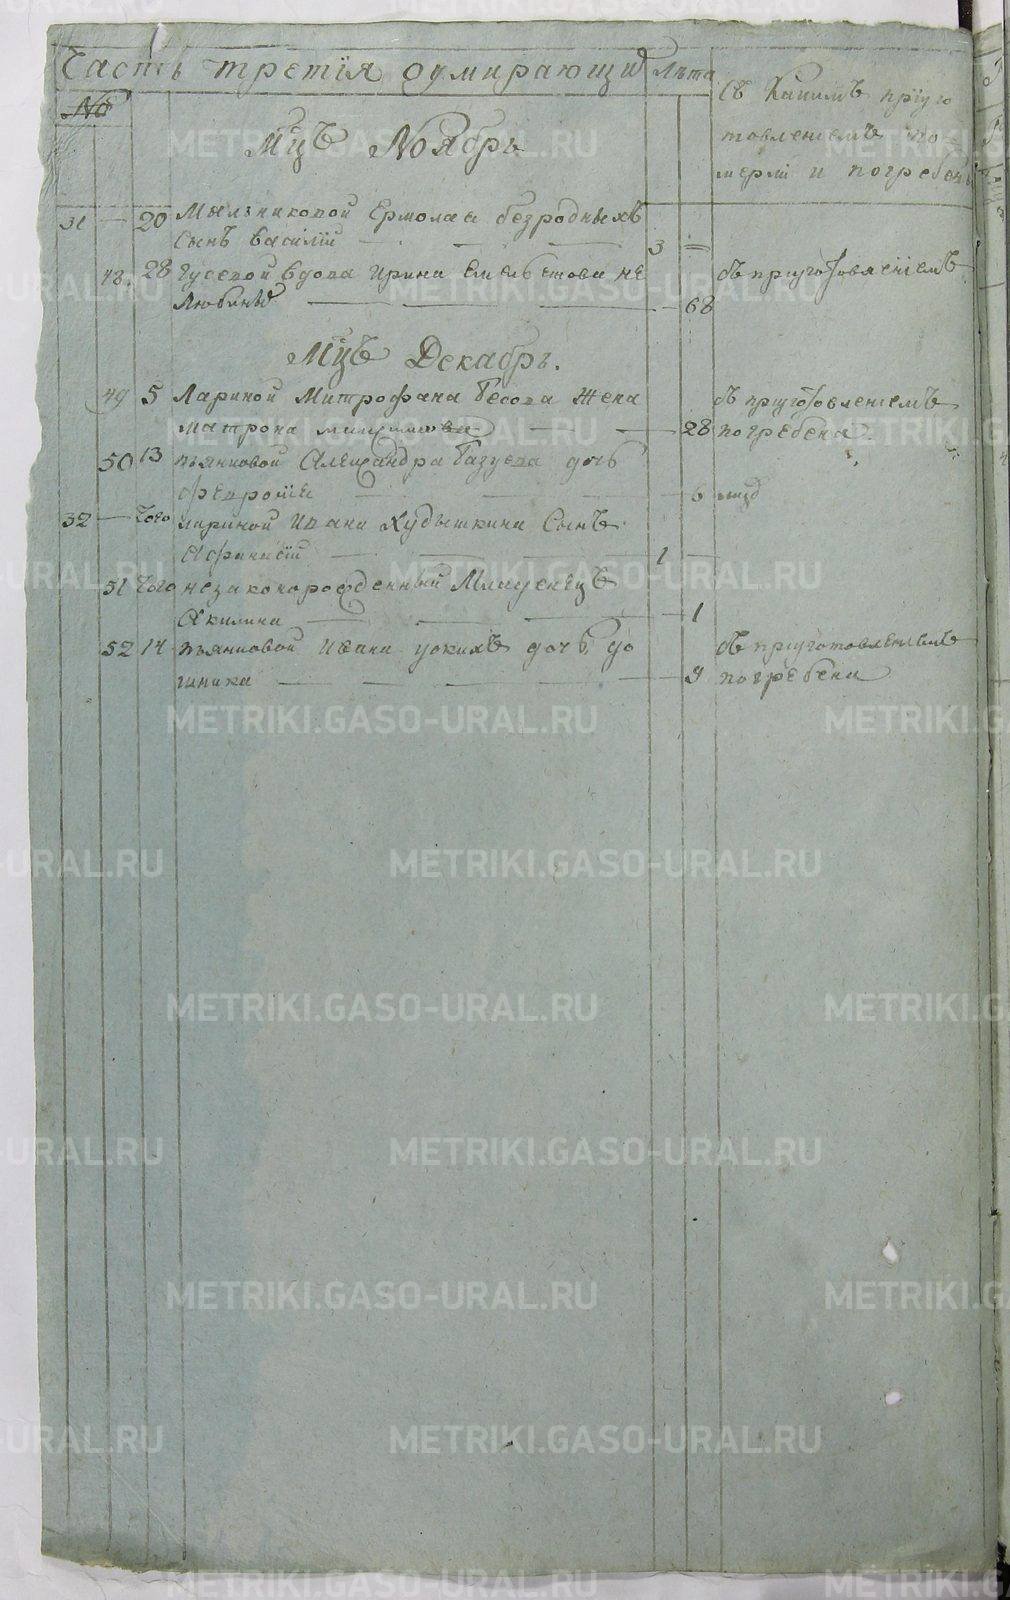 Часть третїя оумирающих Лѣта
№
Съ Каким приуго
товленіемъ по
мерлі и погребены
Мцъ Ноябрь
31 — 20 Мыльниковой Ермолаа безродныхъ
Сынъ Василїй — 3 =
48. 28 Гусевой вдова Ирина не Съ приуготовленіем
68
Мцъ Декабрь.
49 5 Лариной Митрофана Бесова Жена Съ приуготовленіемъ
матрона — 28 погребена.
50 13 пьянковой Александра дочь
— 6 млад
32 — Того лариной Ивана Худышкина Сынъ
Афанасїй — 1 —
51 того незаконорожденный Младенецъ
Акилина — 1
52 14 пьянковой Ивана дочь до Съ приуготовленіемъ
мника — 9 погребена
METRIKI.GASO-URAL.RU